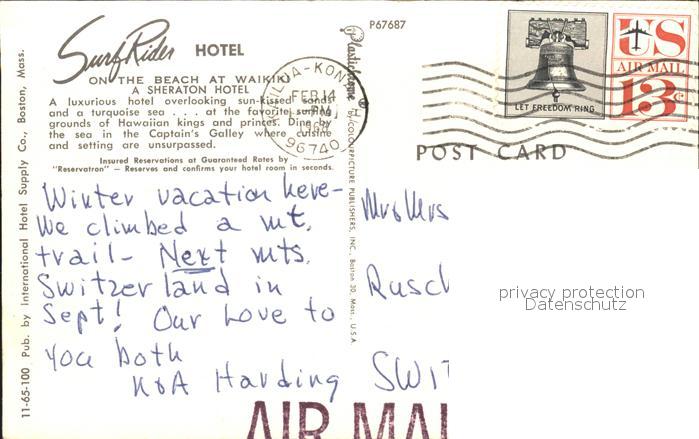 Surf Rider HOTEL
ON THE BEACH AT WAIKIKI
A SHERATON HOTEL
A luxurious hotel overlooking sun-kissed sands
and a turquoise sea . . . . at the favorite surfing
grounds of Hawaiian kings and princes. Dine by
the sea in the Captain's Galley where cuisine
and setting are unsurpassed.
Insured Reservations at Guaranteed Rates by
"Reservatron" — Reserves and confirms your hotel room in seconds.
Winter vacation here-
We climbed a mt.
trail- Next mts.
Switzerland in
Sept! Our Love to
you both
K&A Harding
11-65-100 Pub. by International Hotel Supply Co., Boston, Mass.
P67687
Plastichrome ® by COLOURPICTURE PUBLISHERS, INC., Boston 30, Mass., U.S.A.
KAILUA-KONA
FEB 14
PM
96740
LET FREEDOM RING
US
AIR MAIL
13c
POST CARD
Mrs
Rusch
SWIT
AIR MAI
privacy protection
Datenschutz